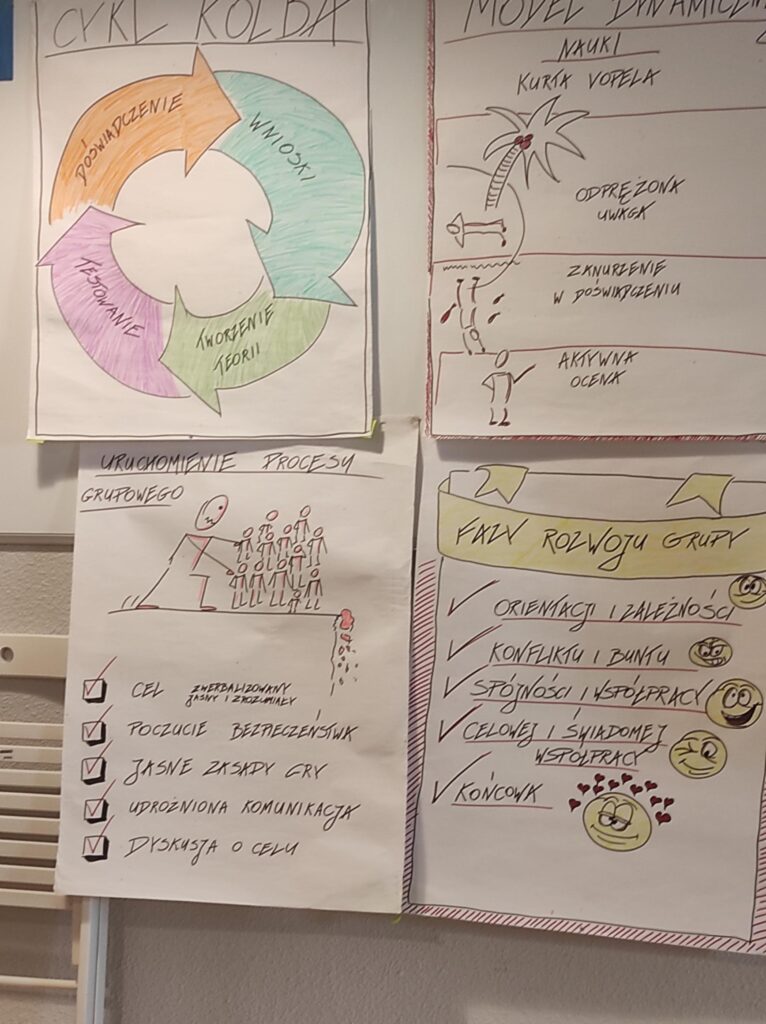 CYKL KOLBA
DOŚWIADCZENIE
WNIOSKI
TWORZENIE
TEORII
TESTOWANIE
MODEL DYNAMICZNEJ
NAUKI
KURTA VOPELA
ODPRĘŻONA
UWAGA
ZANURZENIE
W DOŚWIADCZENIU
AKTYWNA
OCENA
URUCHOMIENIE PROCESU
GRUPOWEGO
CEL ZWERBALIZOWANY
JASNY I ZROZUMIAŁY
POCZUCIE BEZPIECZEŃSTWA
JASNE ZASADY GRY
UDROŻNIONA KOMUNIKACJA
DYSKUSJA O CELU
FAZY ROZWOJU GRUPY
ORIENTACJI I ZALEŻNOŚCI
KONFLIKTU I BUNTU
SPÓJNOŚCI I WSPÓŁPRACY
CELOWEJ I ŚWIADOMEJ
WSPÓŁPRACY
KOŃCOWA